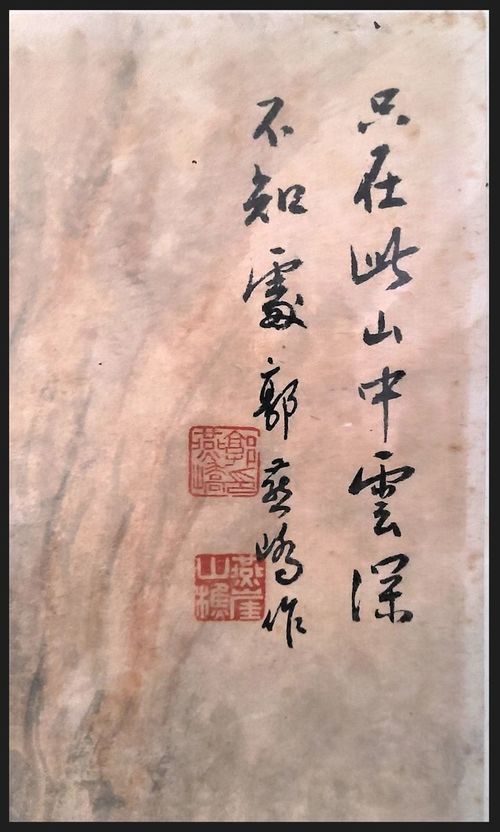 只在此山中雲深
不知處郭燕嶠作
郭印燕嶠
燕崖山樵